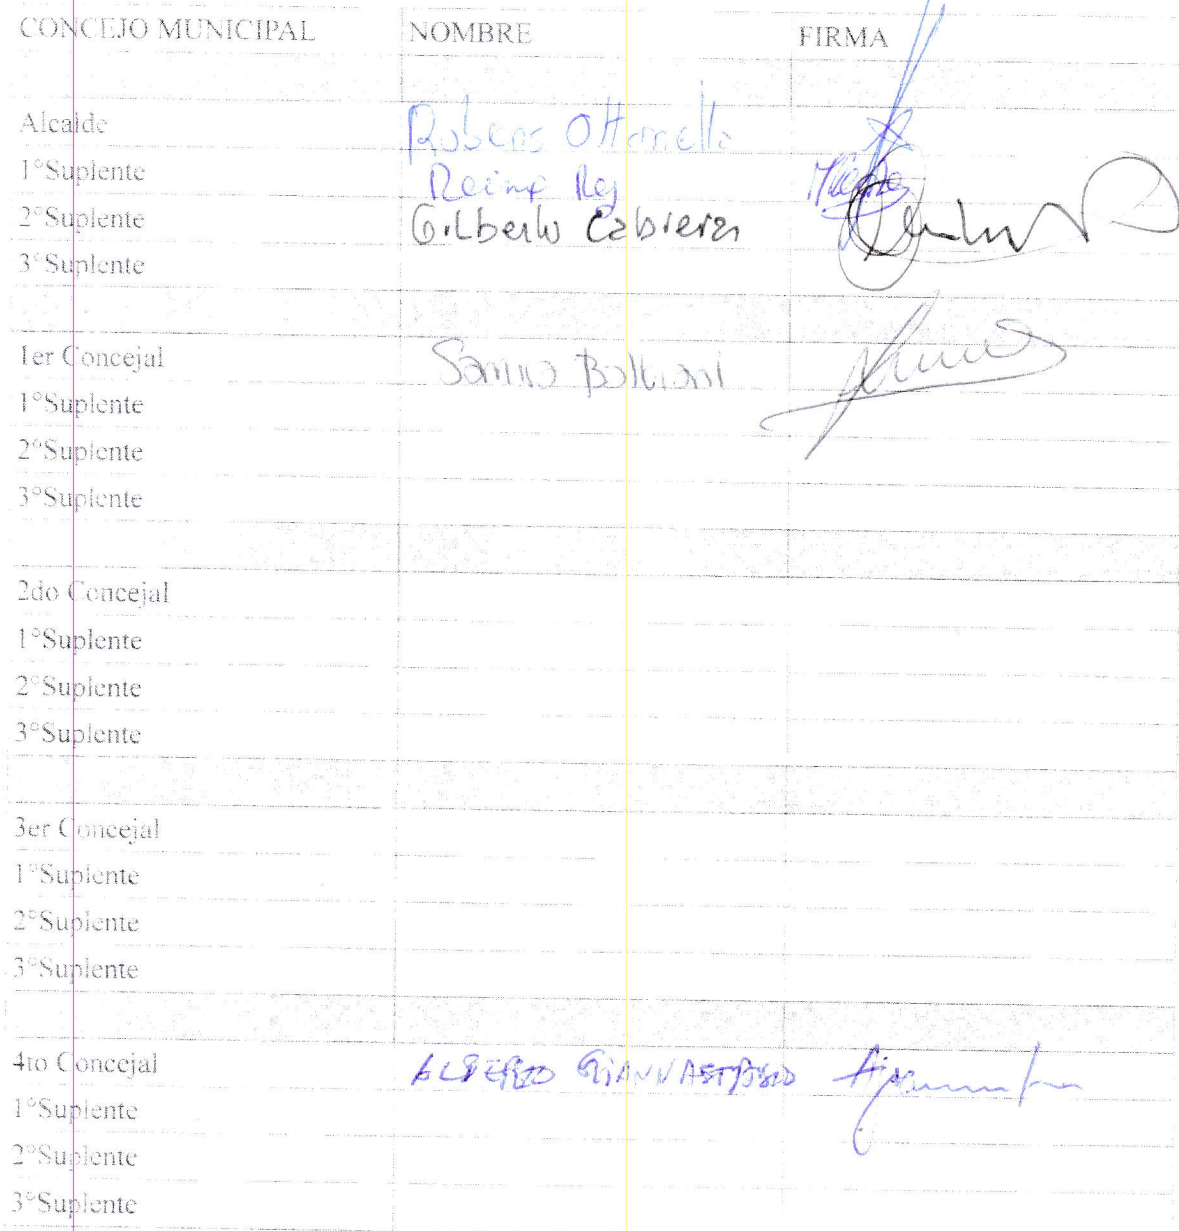 CONCEJO MUNICIPAL NOMBRE FIRMA
Alcalde Rubens Ottonello
1°Suplente Reina Rey
2°Suplente Gilberto Cabrera
3°Suplente
1er Concejal
1°Suplente
2°Suplente
3°Suplente
2do Concejal
1°Suplente
2°Suplente
3°Suplente
3er Concejal
1°Suplente
2°Suplente
3°Suplente
4to Concejal ALBERTO GIANNASTASIO
1°Suplente
2°Suplente
3°Suplente